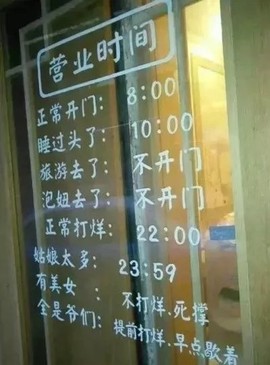 营业时间
正常开门: 8:00
睡过头了: 10:00
旅游去了: 不开门
泡妞去了: 不开门
正常打烊: 22:00
姑娘太多: 23:59
有美女 : 不打烊.死撑
全是爷们: 提前打烊.早点歇着